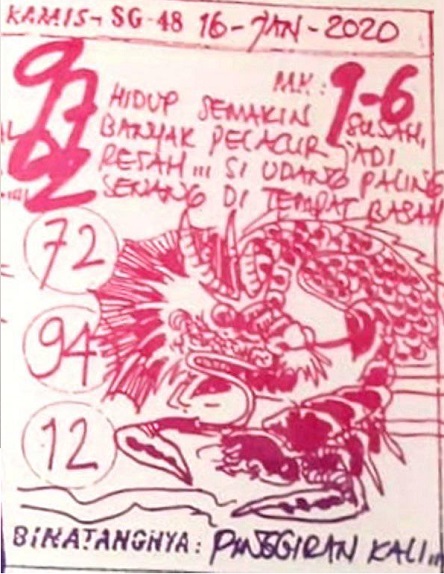 KAMIS SG-48 16-JAN-2020
97 MK: 9-6
HIDUP SEMAKIN SUSAH,
BANYAK PELACUR JADI
62 RESAH... SI UDANG PALING
SENANG DI TEMPAT BASAH
72
94
12
BINATANGNYA: PINGGIRAN KALI...